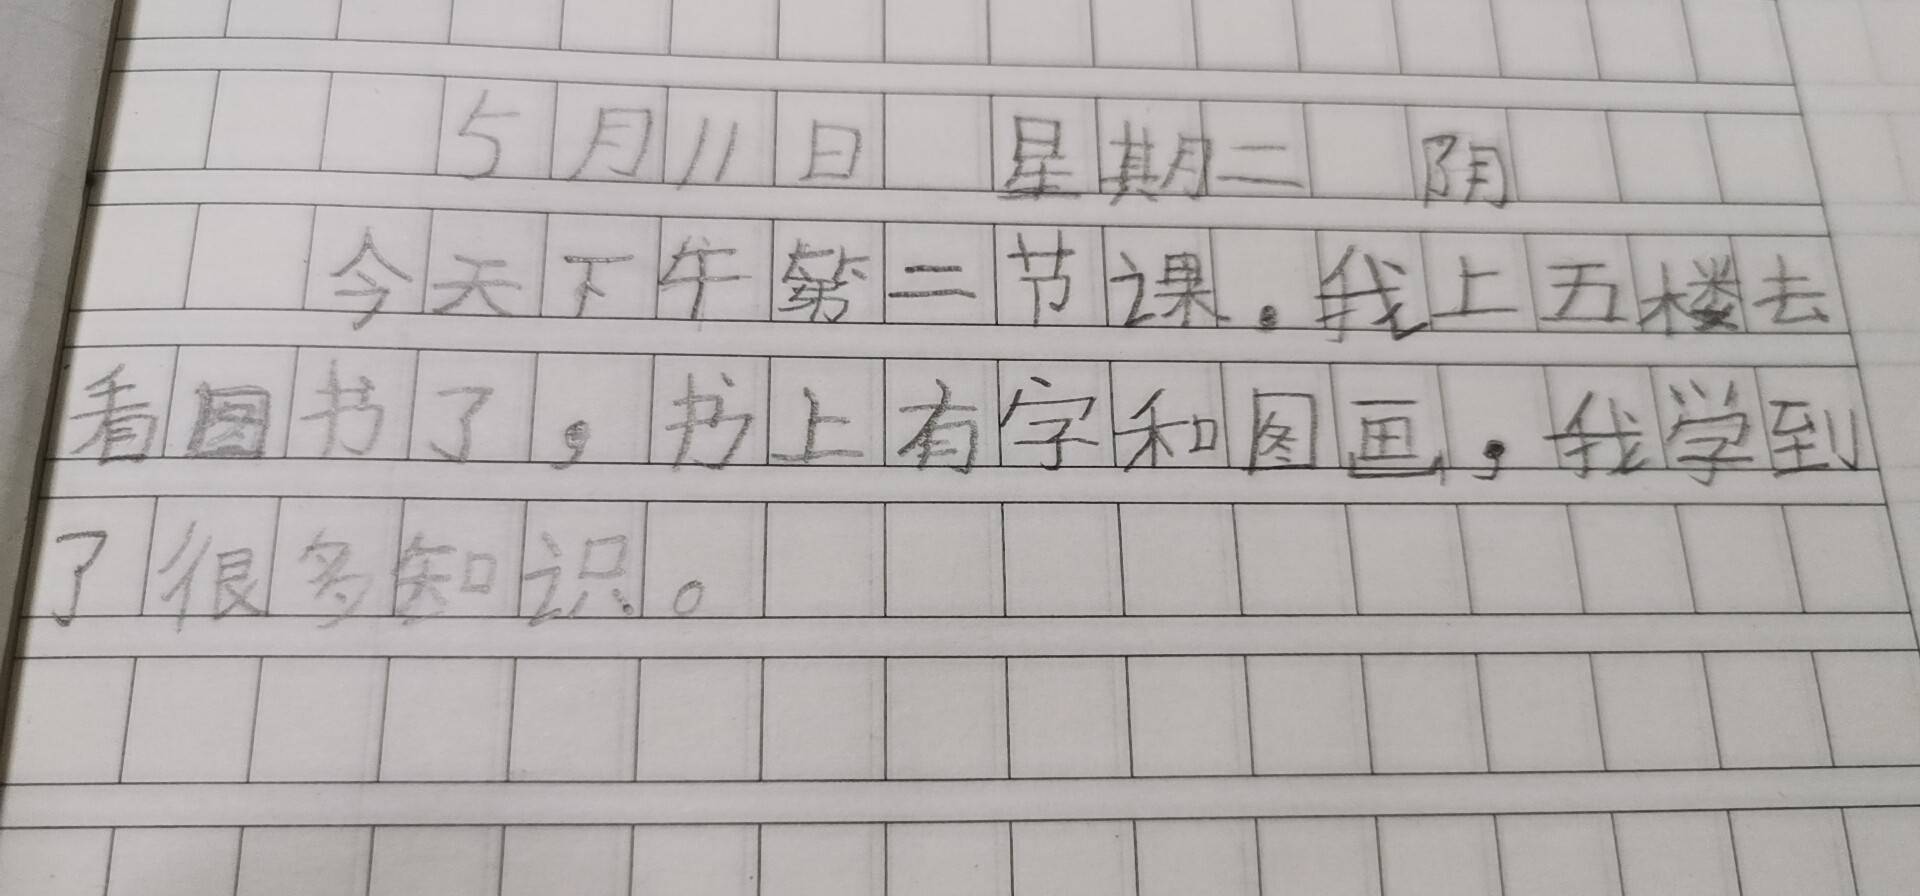 5月11日 星期二 阴
今天下午第二节课，我上五楼去
看图书了，书上有字和图画，我学到
了很多知识。